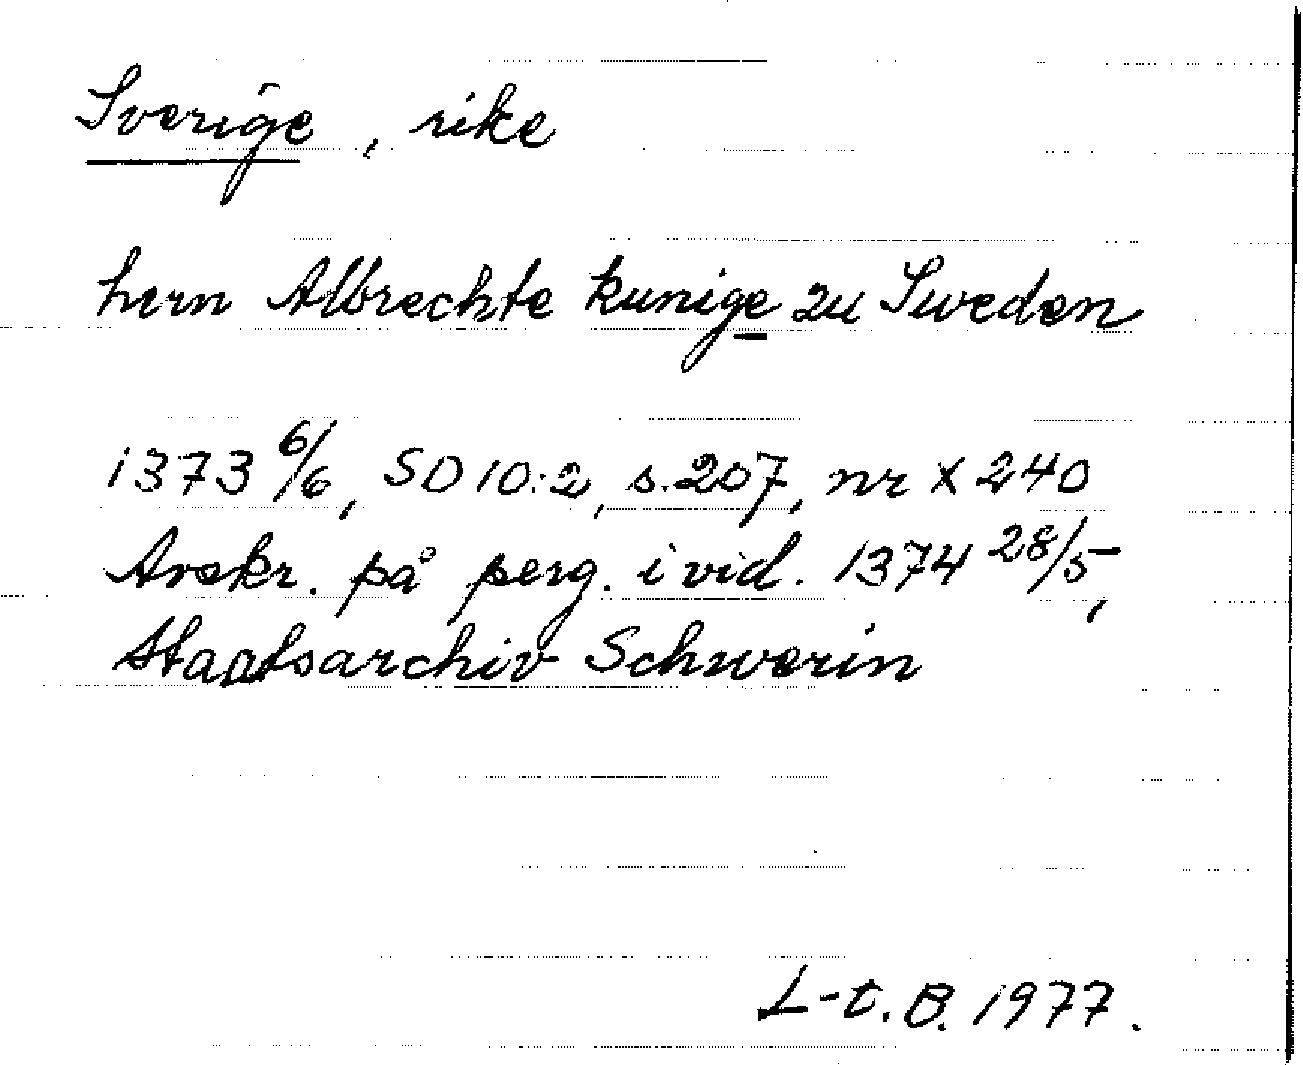 Sverige, rike
hern Albrechte kunige zu Sweden
1373 6/6, SD 10:2, s. 207, nr X 240
Avskr. på perg. i vid. 1374 28/5,
Staatsarchiv Schwerin
L-t. B. 1977.